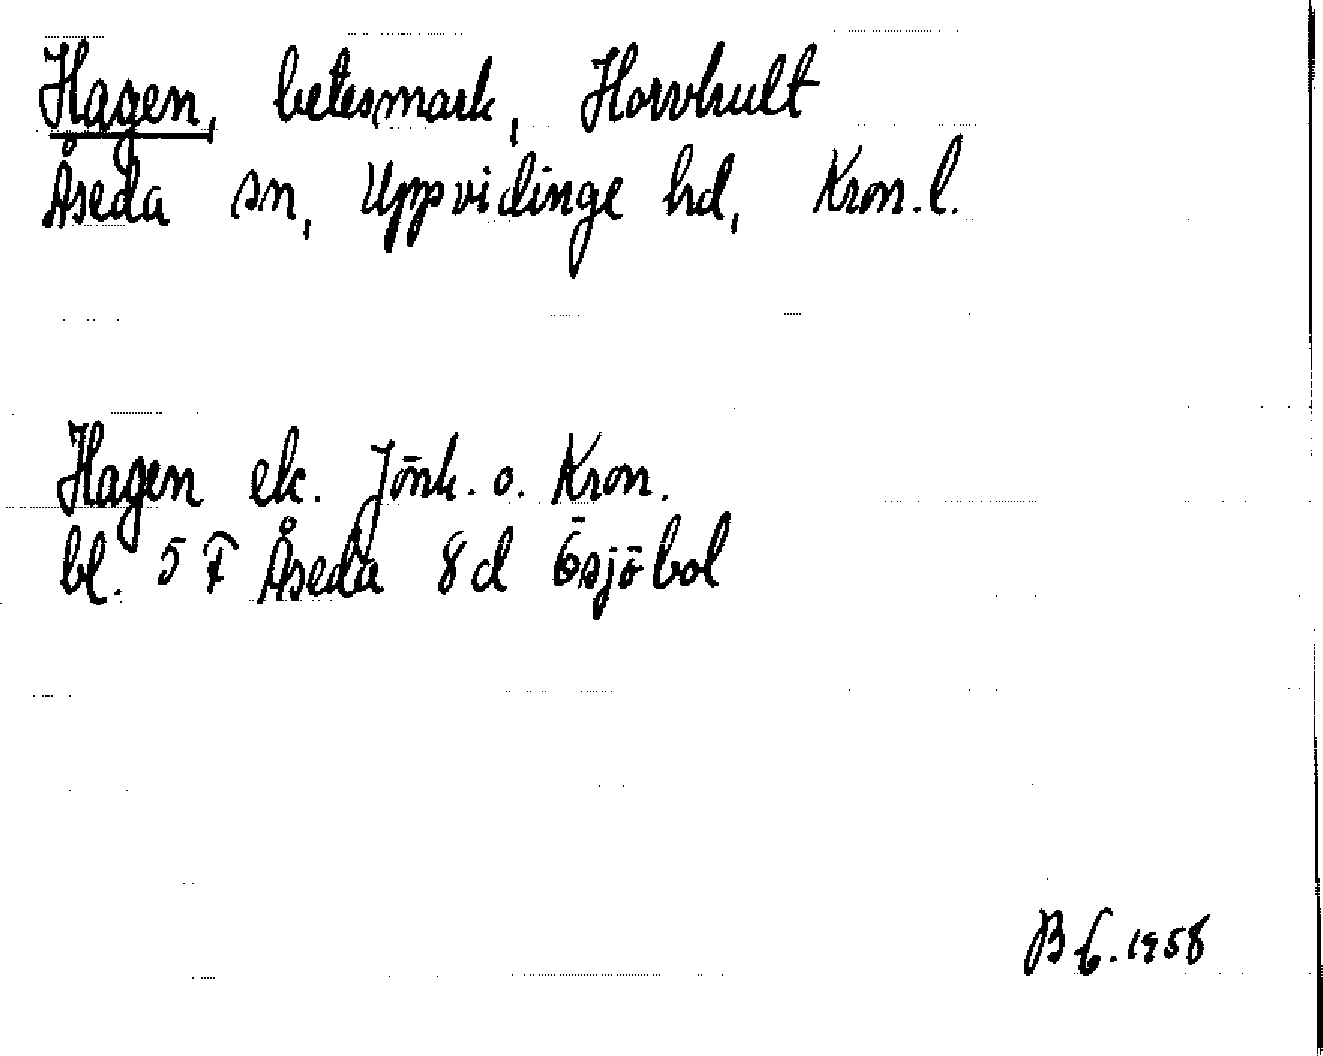 Hagen, betesmark, Horvhult
Åseda sn, Uppvidinge hd, Kron.l.
Hagen ek. Jönk. o. Kron.
bl. 5 F Åseda 8d Ösjöbol
1958